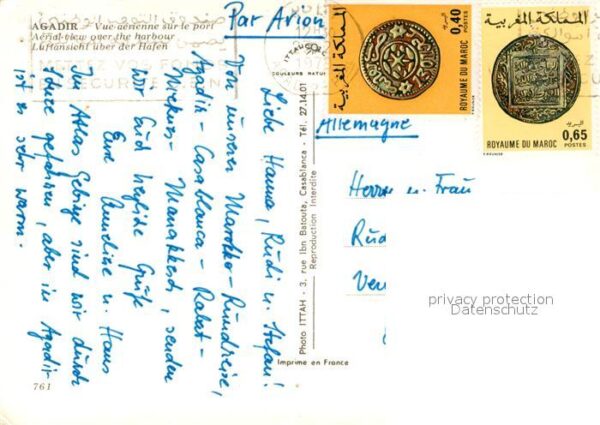 AGADIR — Vue aérienne sur le port
Aerial-view over the harbour
Luftansicht über der Hafen
Par Avion
Liebe Hanna, Rudi u. Stefan!
Von unserer Marokko-Rundreise,
Agadir - Casablanca - Rabat -
Meknes - Marrakesch, senden
wir Euch herzliche Grüße
Eure Anneliese u. Hans
Im Atlas Gebirge sind wir durch
Schnee gefahren, aber in Agadir
ist es sehr warm.
761
COULEURS NATUR
Photo ITTAH - 3, rue Ibn Batouta, Casablanca - Tél. 27.14.01
Reproduction Interdite
Imprimé en France
المملكة المغربية
0,40
POSTES
ROYAUME DU MAROC
المملكة المغربية
0,65
POSTES
ROYAUME DU MAROC
Allemagne
Herrn u. Frau
Rud
Ver
privacy protection
Datenschutz